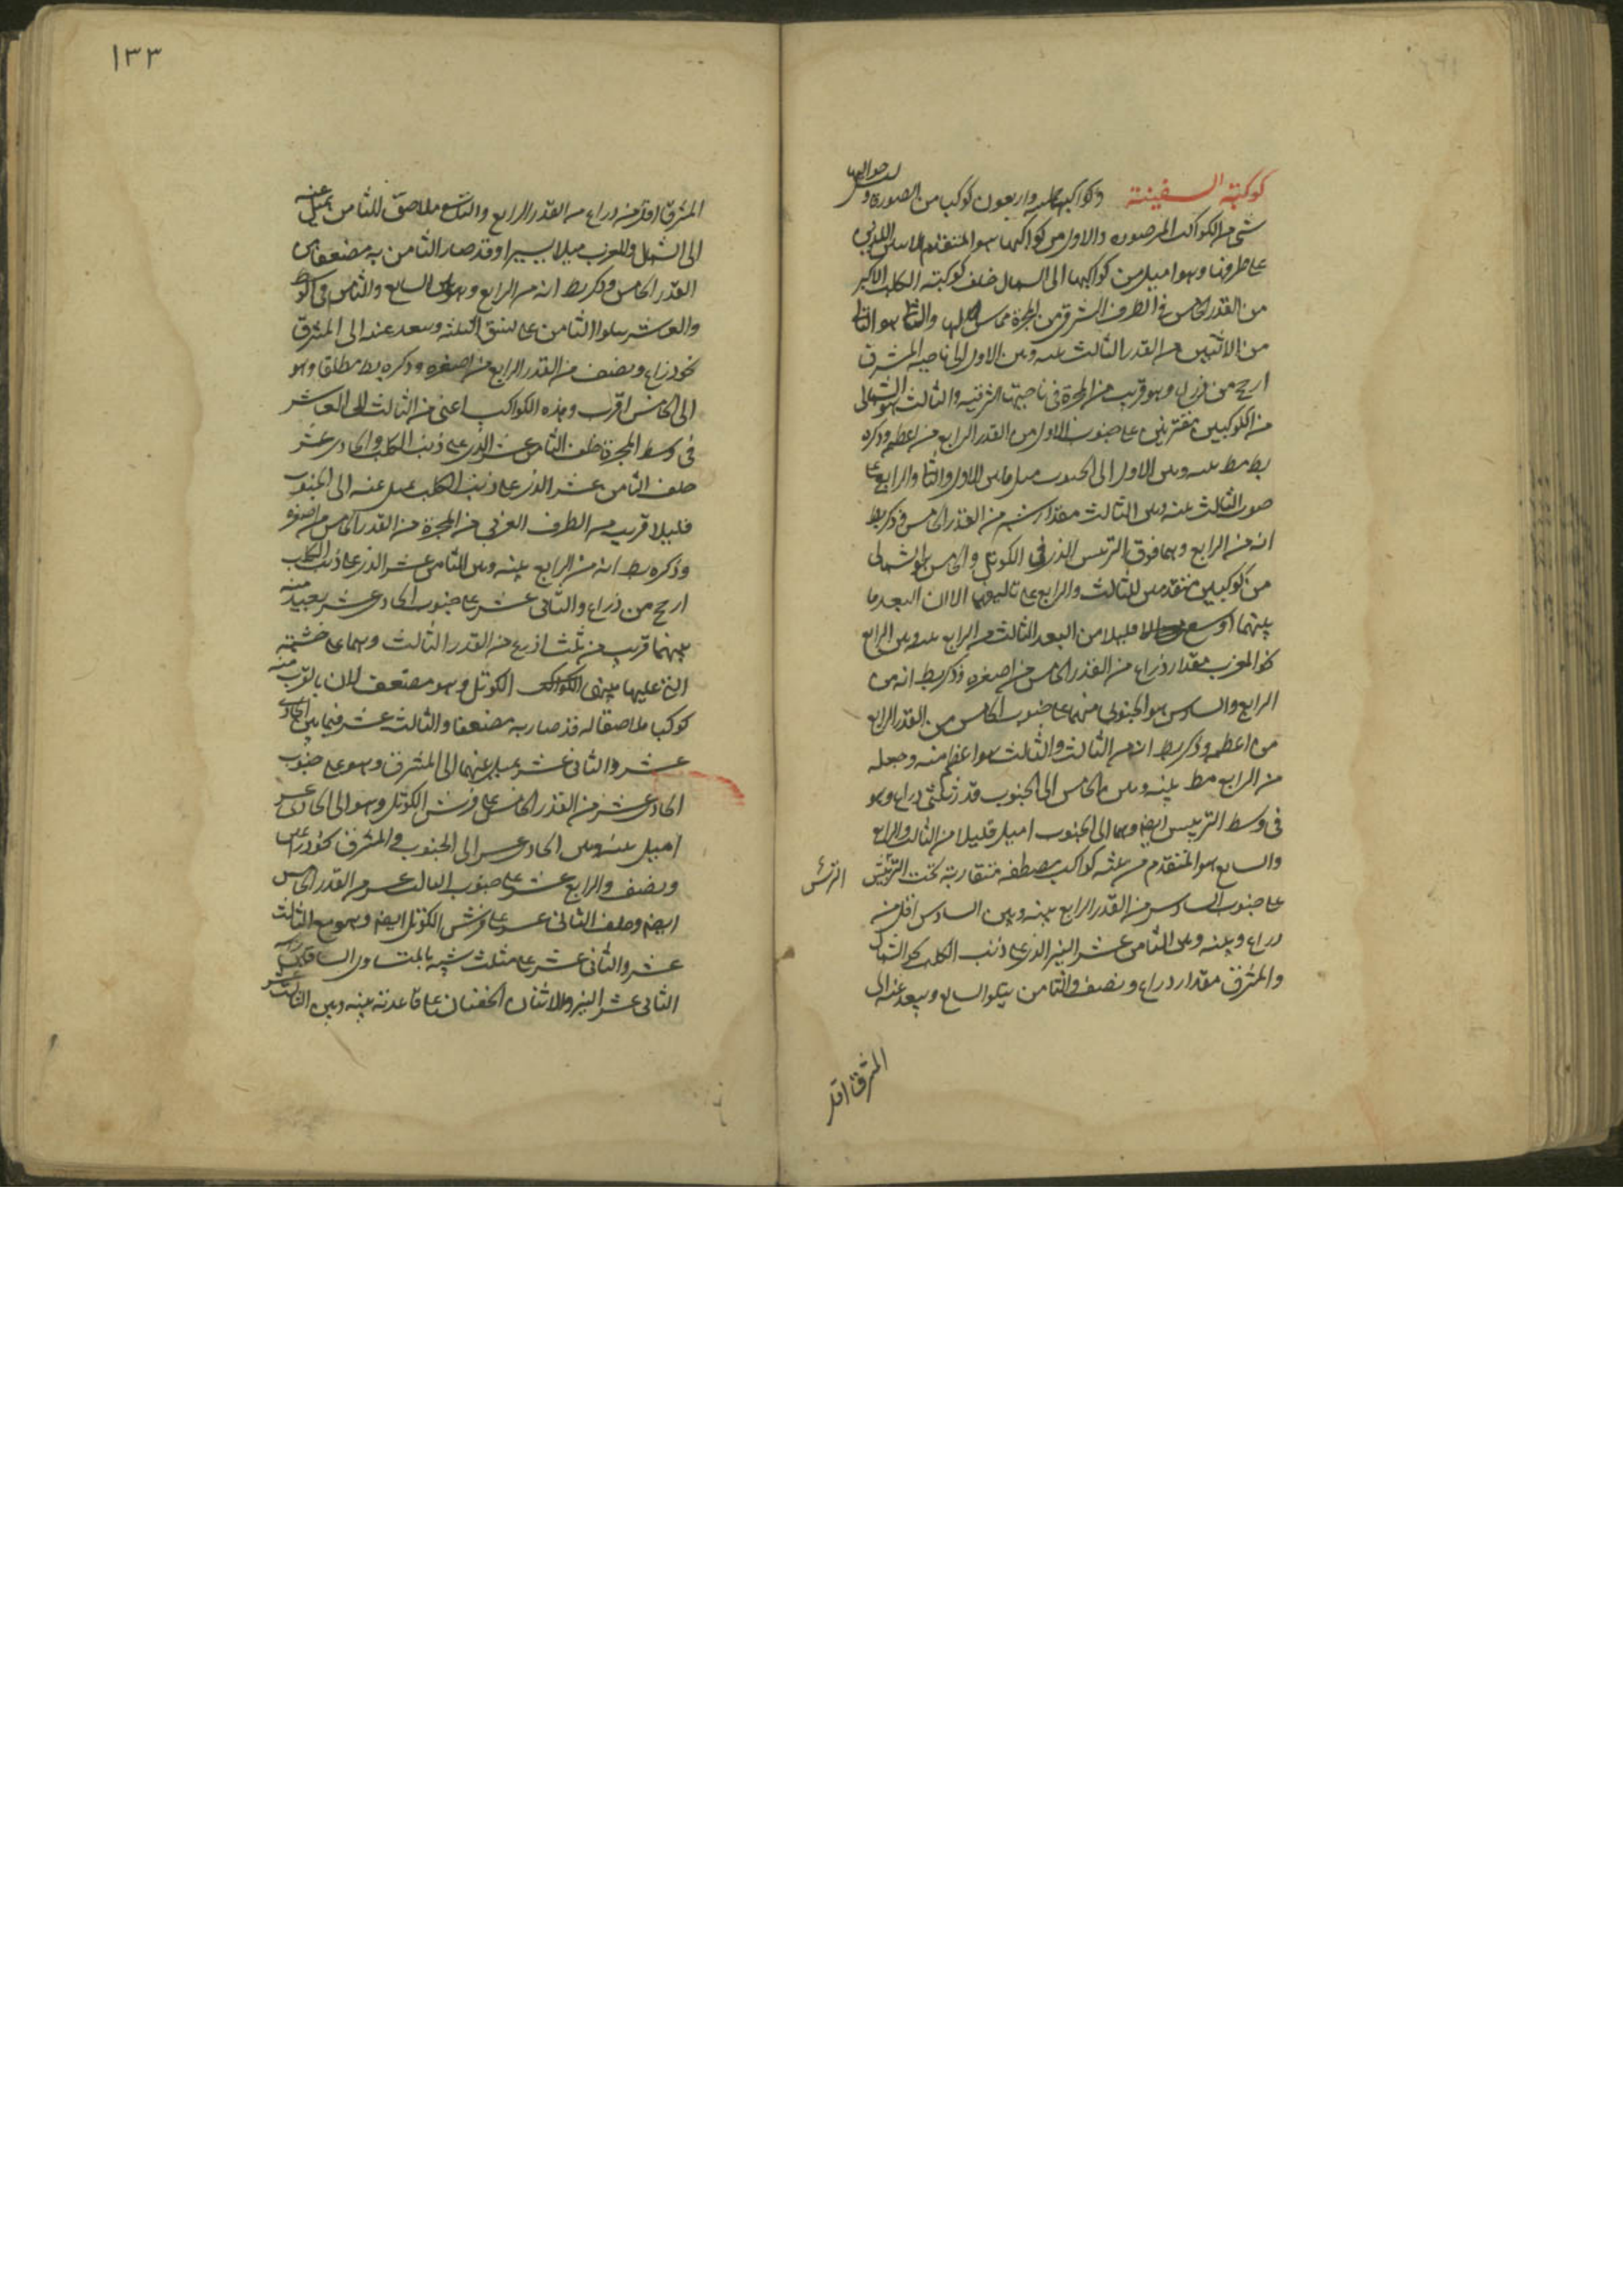 كوكبة السفينة وكواكبها خمسة واربعون كوكبا من الصورة وليس حواليها
شئ من الكواكب المرصوده والاول من كواكبها هو المتقدم الاثنين اللذين
على طرفها وهو اميل من كواكبها الى الشمال خلف كوكبة الكلب الاكبر
من القدر الخامس فى الطرف الشرقى من المجرة مماس لها والثانى هو التالى
من الاثنين من القدر الثالث بينه وبين الاول الى ناحية المشرق
ارجح من ذراع وهو قريب من المجرة فى ناحيتها الشرقية والثالث هو الشمالى
من الكوكبين مقترنين على جنوب الاول من القدر الرابع من اعظمه وذكره
بط مط بينه وبين الاول الى الجنوب مثل ما بين الاول والثانى والرابع على
جنوب الثالث بينه وبين الثالث مقدار شبر من القدر الخامس وذكر بط
انه من الرابع وهما فوق الترس الذى فى الكوثل والخامس هو الشمالى
من كوكبين متقدمين للثالث والرابع على تاليهما الا ان البعد ما
بينهما اوسع قليلا من البعد الثالث من الرابع بينه وبين الرابع
نحو المغرب مقدار ذراع من القدر الخامس من اصغره وذكر بط انه من
الرابع والسادس هو الجنوبى منهما على جنوب الخامس من القدر الرابع
من اعظمه وذكر بط انه من الثالث والثالث هو اعظم منه وجعله
من الرابع مط بينه وبين الخامس الى الجنوب قدر ثلثى ذراع وهو
فى وسط الترس ايضا وهما الى الجنوب اميل قليلا من الثالث والرابع
والسابع هو المتقدم من ثلثه كواكب مصطفه متقاربة تحت الترس
الترس
على جنوب السادس من القدر الرابع بينه وبين السادس اقل من
ذراع وبينه وبين الثامن عشر النير الذى على ذنب الكلب نحو الشمال
والمشرق مقدار ذراع ونصف والثامن يتلو السابع ويبعد عنه الى
المشرق اقل
١٣٣
المشرق اقل من ذراع من القدر الرابع والتاسع ملاصق للثامن يميل عنه
الى الشمال والمغرب ميلا يسيرا وقد صار الثامن به مضعفا من
القدر الخامس وذكر بط انه من الرابع وهو السابع والثامن فى
والعاشر يتلوا الثامن على نسق الثلثة ويبعد عنه الى المشرق
نحو ذراع ونصف من القدر الرابع من اصغره وذكره بط مطلقا وهو
الى الخامس اقرب وهذه الكواكب اعنى من الثالث الى العاشر
فى وسط المجرة خلف الثامن عشر الذى على ذنب الكلب والحادى عشر
خلف الثامن عشر الذى على ذنب الكلب يميل عنه الى الجنوب
قليلا قريب من الطرف الغربى من المجرة من القدر الخامس من اصغره
وذكره بط انه من الرابع بينه وبين الثامن عشر الذى على ذنب الكلب
ارجح من ذراع والثانى عشر على جنوب الحادى عشر بعيد منه
بينهما قريب من ثلث اذرع من القدر الثالث وهما على خشبة
التى عليها الكوثل وهو مضعف لان بالقرب منه
كوكبا ملاصقا له قد صار به مضعفا والثالث عشر فيما بين الحادى
عشر والثانى عشر يميل عنهما الى المشرق وهو على جنوب
الحادى عشر من القدر الخامس على فرش الكوثل وهو الى الحادى عشر
اميل بينه وبين الحادى عشر الى الجنوب والمشرق نحو ذراعين
ونصف والرابع عشر على جنوب الثالث عشر من القدر الخامس
ايضا وخلف الثانى عشر على فرش الكوثل ايضا وهو مع الثالث
عشر والثانى عشر على مثلث شبيه بالمتساوى الساقين راسه
الثانى عشر النير والاثنان الخفيان على قاعدته بينه وبين الثالث عشر